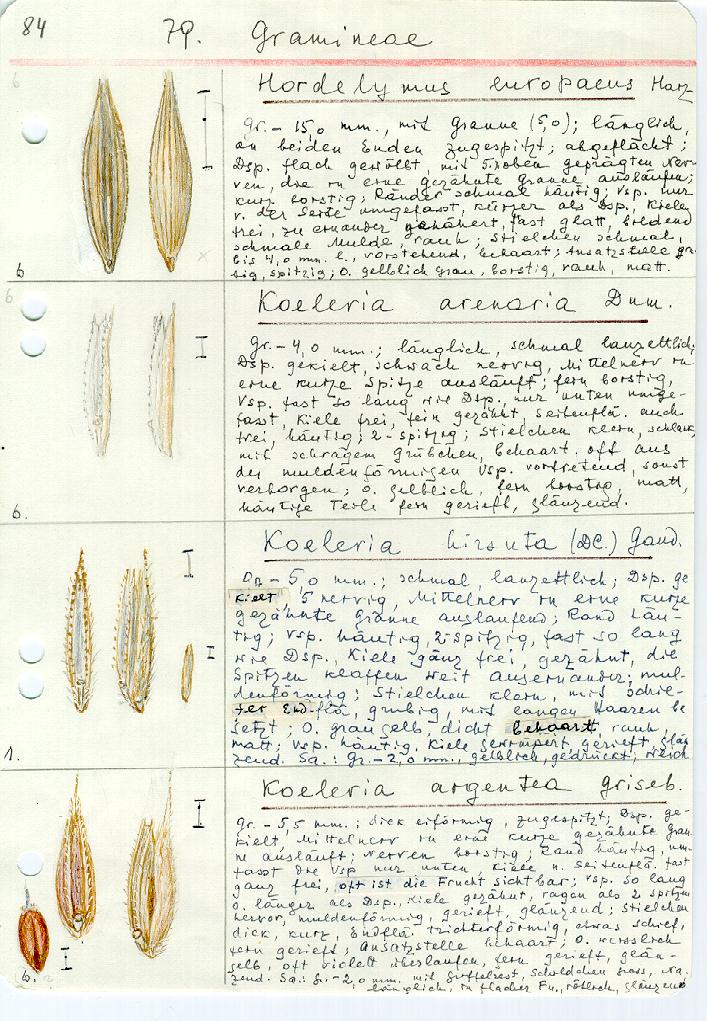 84 79. Gramineae
6
Hordelymus europaeus Harz
Gr. - 15,0 mm., mit Granne (5,0); länglich,
an beiden Enden zugespitzt; abgeflacht;
Dsp. flach gewölbt mit 5 groben geprägten Ner-
ven, die in eine gezähnte Granne auslaufen;
kurz borstig; Ränder schmal häutig; Vsp. nur
v. der Seite umgefasst, kürzer als Dsp., Kiele
frei, zu einander genähert, fast glatt, bildend
schmale Mulde, rauh; Stielchen schmal,
bis 4,0 mm. l., vorstehend, behaart; Ansatzstelle gru-
big, spitzig; O. gelblich grau, borstig, rauh, matt.
6
6
Koeleria arenaria Dum.
Gr. - 4,0 mm.; länglich, schmal lanzettlich;
Dsp. gekielt, schwach nervig, Mittelnerv in
eine kurze Spitze ausläuft; fein borstig,
Vsp. fast so lang wie Dsp., nur unten umge-
fasst, Kiele frei, fein gezähnt, Seitenflä. auch
frei, häutig; 2-spitzig; Stielchen klein, schlank,
mit schrägem Grübchen, behaart. oft aus
der muldenförmigen Vsp. vortretend, sonst
verborgen; O. gelblich, fein borstig, matt,
häutige Teile fein gerieft, glänzend.
6.
Koeleria hirsuta (DC.) Gaud.
Gr. - 5,0 mm.; schmal, lanzettlich; Dsp. ge
kielt, 5 nervig, Mittelnerv in eine kurze
gezähnte Granne auslaufend; Rand häu-
tig; Vsp. häutig, 2 spitzig, fast so lang
wie Dsp., Kiele ganz frei, gezähnt, die
Spitzen klaffen weit auseinander; mul-
denförmig; Stielchen klein, mit schie-
fer Endflä, grubig, mit langen Haaren be
setzt; O. grau gelb, dicht behaart, rauh,
matt; Vsp. häutig, Kiele bewimpert, gerieft, glän
zend. Sa.: Gr. - 2,0 mm., gelblich, gedrückt,
1.
Koeleria argentea Griseb.
Gr. - 5,5 mm.; dick eiförmig, zugespitzt; Dsp. ge-
kielt, Mittelnerv in eine kurze gezähnte Gran
ne ausläuft; Nerven borstig; Rand häutig, um-
fasst die Vsp nur unten, Kiele u. Seitenflä. fast
ganz frei, oft ist die Frucht sichtbar; Vsp. so lang
o. länger als Dsp., Kiele gezähnt, ragen als 2 Spitzen
hervor, muldenförmig, gerieft, glänzend; Stielchen
dick, kurz, Endflä. trichterförmig, etwas schief,
fein gerieft; Ansatzstelle behaart; O. weisslich
gelb, oft violett überlaufen, fein gerieft, glän-
zend. Sa.: Gr. - 2,0 mm. mit Griffelrest, Schildchen gross, Na.
länglich, in flacher Fu., rötlich, glänzend
6.